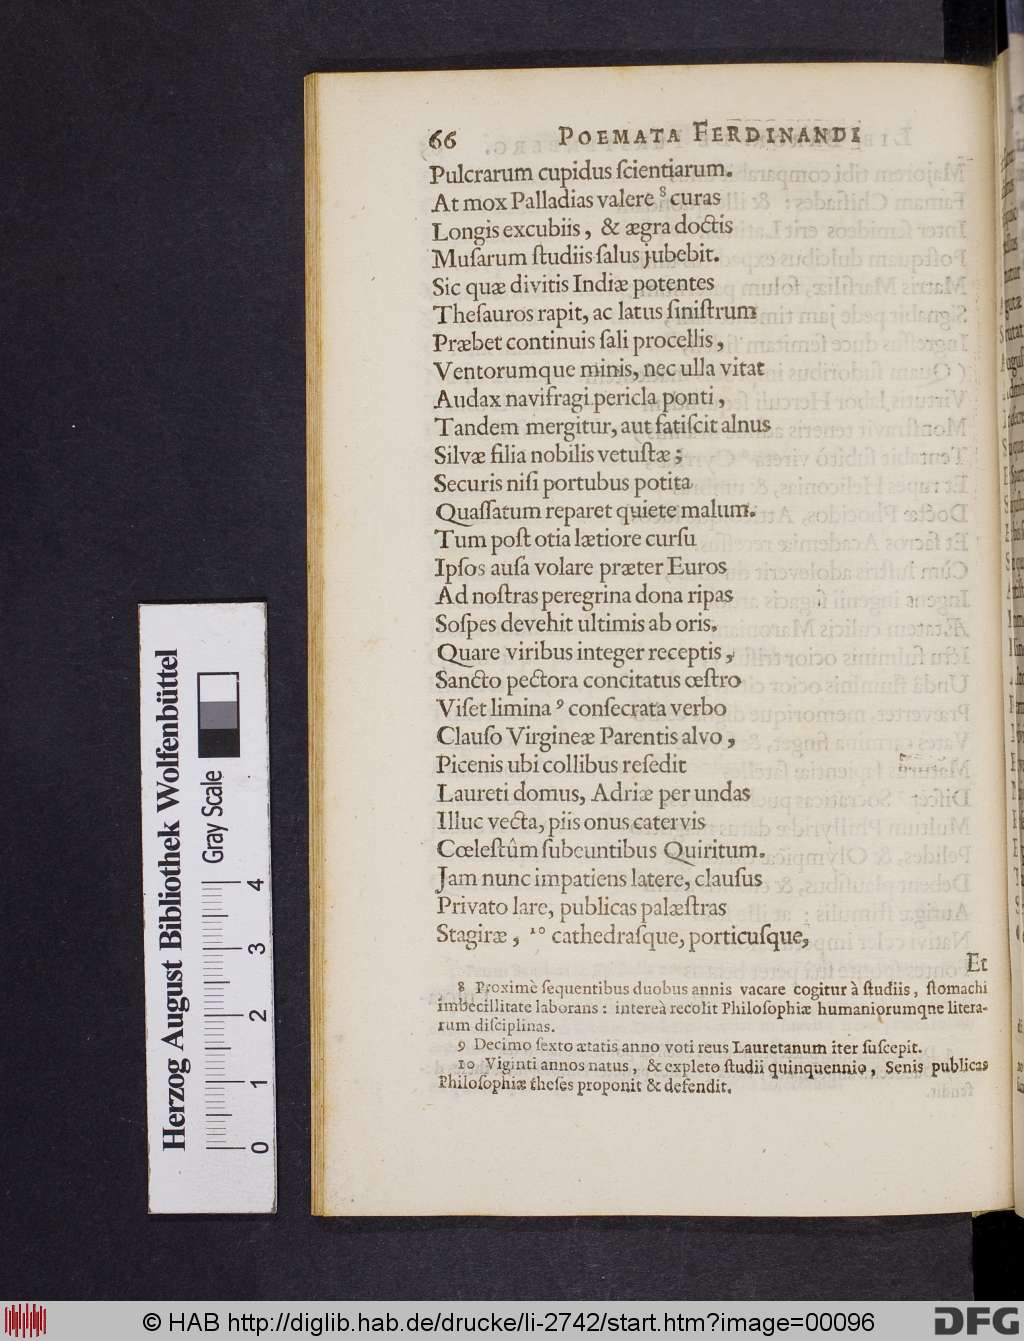 66 POEMATA FERDINANDI
Pulcrarum cupidus ſcientiarum.
At mox Palladias valere ⁸ curas
Longis excubiis, & ægra doctis
Muſarum ſtudiis ſalus jubebit.
Sic quæ divitis Indiæ potentes
Theſauros rapit, ac latus ſiniſtrum
Præbet continuis ſali procellis,
Ventorumque minis, nec ulla vitat
Audax navifragi pericla ponti,
Tandem mergitur, aut fatiſcit alnus
Silvæ filia nobilis vetuſtæ;
Securis niſi portubus potita
Quaſſatum reparet quiete malum.
Tum poſt otia lætiore curſu
Ipſos auſa volare præter Euros
Ad noſtras peregrina dona ripas
Soſpes devehit ultimis ab oris.
Quare viribus integer receptis,
Sancto pectora concitatus œſtro
Viſet limina ⁹ conſecrata verbo
Clauſo Virgineæ Parentis alvo,
Picenis ubi collibus reſedit
Laureti domus, Adriæ per undas
Illuc vecta, piis onus catervis
Cœleſtûm ſubeuntibus Quiritum.
Jam nunc impatiens latere, clauſus
Privato lare, publicas palæſtras
Stagiræ, ¹⁰ cathedraſque, porticuſque,
Et
8 Proximè ſequentibus duobus annis vacare cogitur à ſtudiis, ſtomachi
imbecillitate laborans: intereà recolit Philoſophiæ humaniorumqne litera-
rum diſciplinas.
9 Decimo ſexto ætatis anno voti reus Lauretanum iter ſuſcepit.
10 Viginti annos natus, & expleto ſtudii quinquennio, Senis publicas
Philoſophiæ theſes proponit & defendit.
Herzog August Bibliothek Wolfenbüttel
Gray Scale
0 1 2 3 4
© HAB http://diglib.hab.de/drucke/li-2742/start.htm?image=00096
DFG